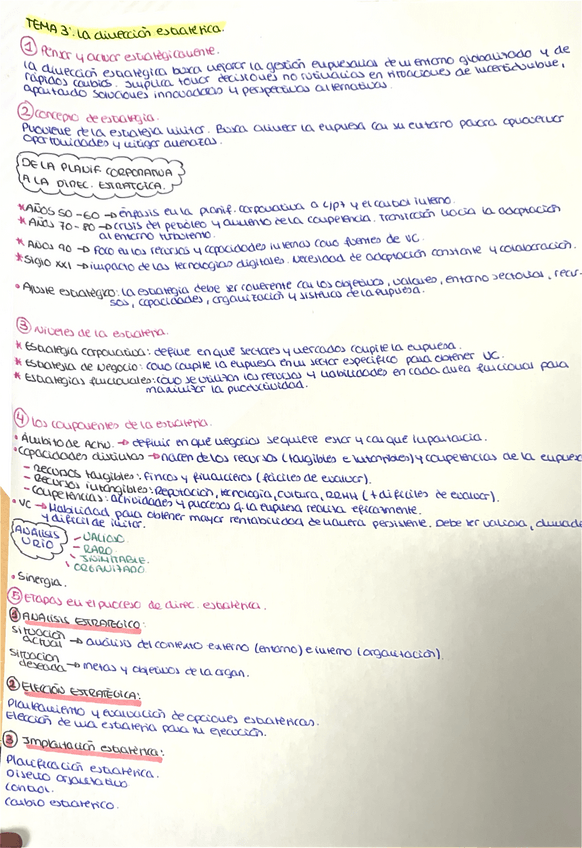 TEMA 3: La dirección estratégica.
① Pensar y actuar estratégicamente.
La dirección estratégica busca mejorar la gestión empresarial de un entorno globalizado y de
rápidos cambios. Implica tomar decisiones no rutinarias en situaciones de incertidumbre,
aportando soluciones innovadoras y perspectivas alternativas.
② Concepto de estrategia.
Proviene de la estrategia militar. Busca alinear la empresa con su entorno para aprovechar
oportunidades y mitigar amenazas.
DE LA PLANIF. CORPORATIVA
A LA DIREC. ESTRATÉGICA.
* AÑOS 50-60 → énfasis en la planif. corporativa a c/pt y el control interno.
* AÑOS 70-80 → crisis del petróleo y aumento de la competencia. Transición hacia la adaptación
al entorno turbulento.
* AÑOS 90 → Foco en los recursos y capacidades internas como fuentes de VC.
* Siglo XXI → impacto de las tecnologías digitales. Necesidad de adaptación constante y colaboración.
• Ajuste estratégico: la estrategia debe ser coherente con los objetivos, valores, entorno sectorial, recur-
sos, capacidades, organización y sistema de la empresa.
③ Niveles de la estrategia.
* Estrategia corporativa: define en qué sectores y mercados compite la empresa.
* Estrategia de Negocio: como compite la empresa en un sector específico para obtener VC.
* Estrategias funcionales: como se utilizan los recursos y habilidades en cada área funcional para
maximizar la productividad.
④ Los componentes de la estrategia.
• Ámbito de Actv. → definir en qué negocios se quiere estar y con qué importancia.
• Capacidades distintivas → nacen de los recursos (tangibles e intangibles) y competencias de la empresa
- Recursos tangibles: físicos y financieros (fáciles de evaluar).
- Recursos intangibles: Reputación, tecnología, cultura, RRHH (+ difíciles de evaluar).
- Competencias: actividades y procesos q la empresa realiza eficazmente.
• VC → Habilidad para obtener mayor rentabilidad de manera persistente. Debe ser valiosa, duradera
y difícil de imitar.
ANÁLISIS
VRIO
- VALIOSO
- RARO
- INIMITABLE
- ORGANIZADO
• Sinergia.
⑤ Etapas en el proceso de direc. estratégica.
① ANÁLISIS ESTRATÉGICO:
Situación
actual → análisis del contexto externo (entorno) e interno (organización).
Situación
deseada → metas y objetivos de la organ.
② ELECCIÓN ESTRATÉGICA:
Planteamiento y evaluación de opciones estratégicas.
Elección de una estrategia para su ejecución.
③ Implantación estratégica:
Planificación estratégica.
Diseño organizativo
Control.
Cambio estratégico.